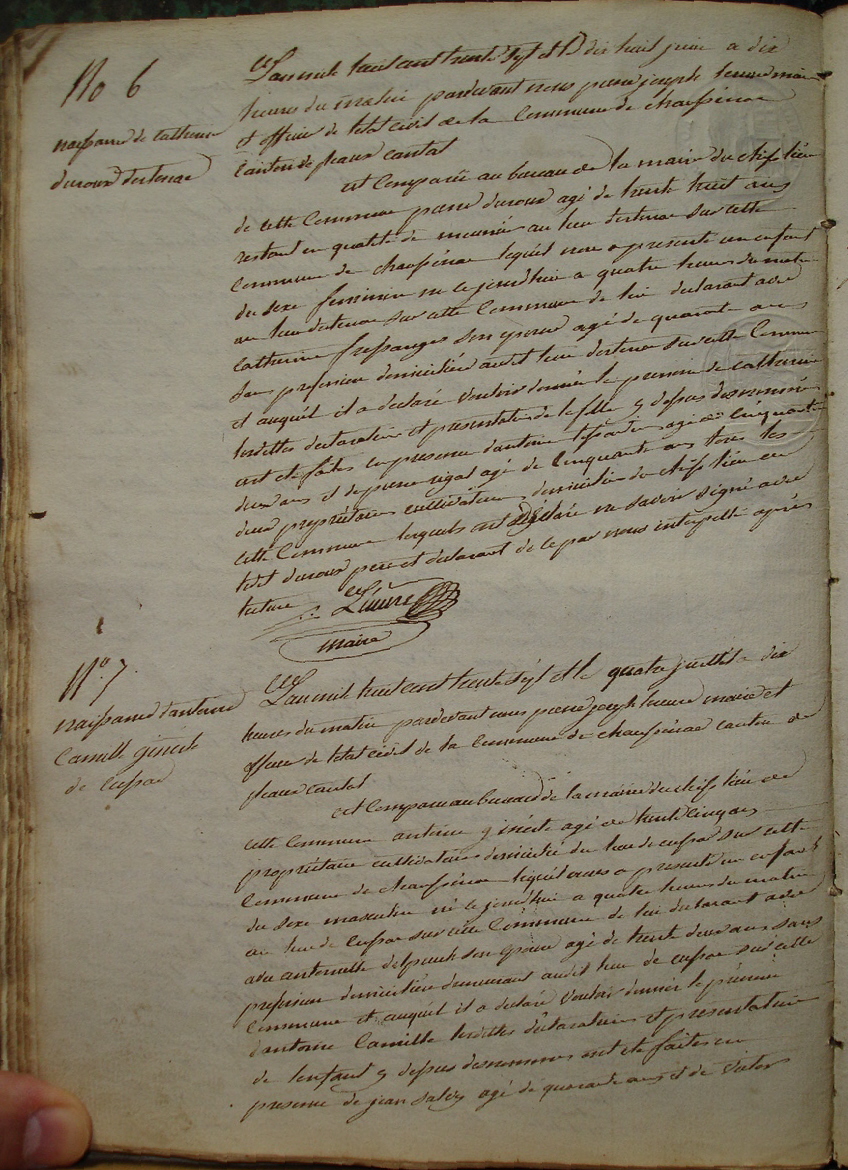 No 6
naissance de catherine
duroux destenac
L'an mil huit cent trente sept et le dix huit juin a dix
heures du matin pardevant nous pierre joseph maire
et officier de letat civil de la Commune de chaussenac
Canton de pleaux cantal
est Comparu au bureau de la mairie du chef lieu
de cette Commune pierre duroux agé de trente huit ans
restant en qualité de meunier au lieu destenac sur cette
Commune de chaussenac lequel nous a presenté un enfant
du sexe feminin né ce jourdhui a quatre heures du matin
au lieu destenac sur cette Commune de lui declarant avec
Catherine fressanges son epouse agé de quarante ans
sans profession domiciliée audit lieu destenac sur cette Commune
et auquel il a declaré Vouloir donner le prenom de catherine
lesdittes declaration et presentation de la fille y dessus denommée
ont eté faites en presence dantoine agé de Cinquante
deux ans et de pierre rigal agé de Cinquante ans tous les
deux propriétaires cultivateurs domiciliés du chef lieu de
cette Commune lesquels ont Déclaré ne savoir signé avec
ledit duroux pere et declarant de ce par nous interpellé après
lecture
maire
N° 7
naissance dantoine
Camille ginioite
de
L'an mil huit cent trente sept et le quatre juillet a dix
heures du matin pardevant nous pierre joseph maire et
officier de letat civil de la Commune de chaussenac canton de
pleaux cantal
est Comparu au bureau de la mairie du chef lieu de
cette Commune antoine agé de trente cinq ans
propriétaire cultivateur domicilié du lieu de sur cette
Commune de chaussenac lequel nous a presenté un enfant
du sexe masculin né ce jourdhui a quatre heures du matin
au lieu de sur cette Commune de lui declarant avec
avec antoinette son epouse agé de trente deux ans sans
profession domiciliée demeurant audit lieu de sur cette
Commune et auquel il a declaré Vouloir donner le prénom
d'antoine Camille lesdittes declaration et presentation
de lenfant y dessus denommé ont eté faites en
presence de jean salvy agé de quarante ans et de victor